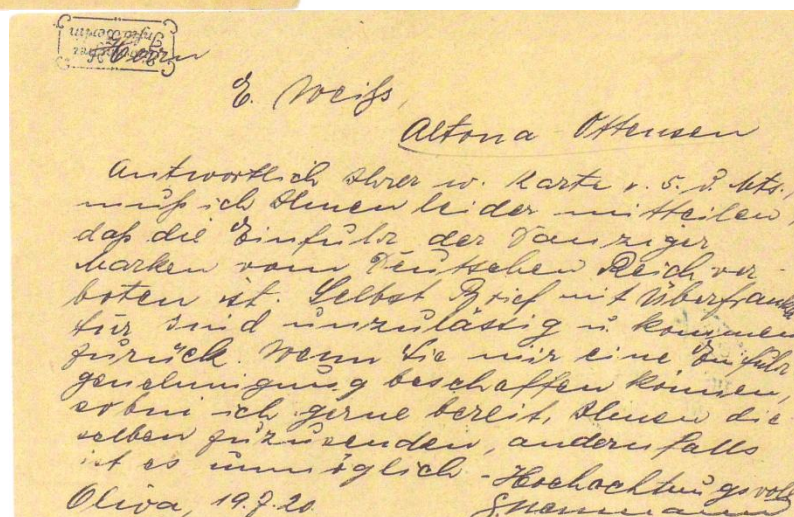 Herrn
E. Weiß,
Altona-Ottensen
Antwortlich Ihrer w. Karte v. 5. d. Mts.,
muß ich Ihnen leider mitteilen,
daß die Einfuhr der Danziger
Marken vom Deutschen Reich ver-
boten ist. Selbst Brief mit Überfranka
tur sind unzulässig u. kommen
zurück. Wenn Sie mir eine Einfuhr
genehmigung beschaffen können,
so bin ich gerne bereit, Ihnen die-
selben zuzusenden, andernfalls
ist es unmöglich - Hochachtungsvoll
Oliva, 19.7.20.